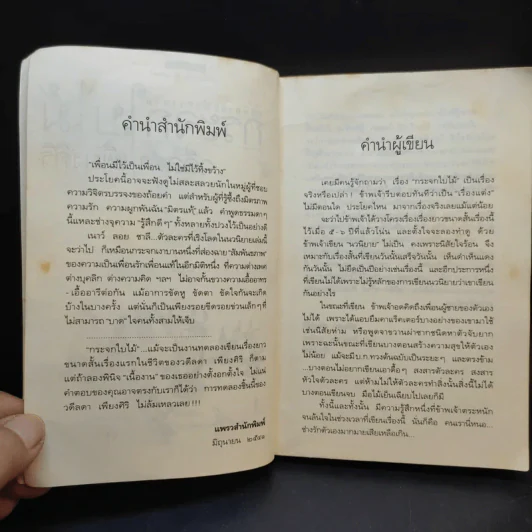 คำนำสำนักพิมพ์
"เพื่อนมีไว้เป็นเพื่อน ไม่ใช่มีไว้ทิ้งขว้าง"
ประโยคนี้อาจจะฟังดูไม่สละสลวยนักในหมู่ผู้ที่ชอบ
ความวิจิตรบรรจงของถ้อยคำ แต่สำหรับผู้ที่รู้ซึ้งถึงมิตรภาพ
ความรัก ความผูกพันฉัน "มิตรแท้" แล้ว คำพูดธรรมดาๆ
นี้แหละช่างจุความ "รู้สึกดีๆ" ทั้งหลายทั้งปวงไว้เป็นอย่างดี
เนาว์ ลอย ชาลี...ตัวละครที่เริงโลดในนวนิยายเล่มนี้
จะว่าไป ก็เหมือนกระจกเงาบานหนึ่งที่ส่องฉาย "สัมพันธภาพ"
ของความเป็นเพื่อนรักเพื่อนแท้ในอีกมิติหนึ่ง ที่ความต่างเพศ
ต่างบุคลิก ต่างความคิด ฯลฯ ไม่อาจกั้นขวางความเอื้ออาทร
-เอื้ออารีต่อกัน แม้อาการขัดหู ขัดตา ขัดใจกันจะเกิด
บ้างในบางครั้ง แต่นั่นก็เป็นเพียงรอยขีดรอยข่วนเล็กๆ ที่
ไม่สามารถ "บาด" ใจคนทั้งสามให้เจ็บ
"กระจกใบไม้" ...แม้จะเป็นงานทดลองเขียนเรื่องยาว
ขนาดสั้นเรื่องแรกในชีวิตของวดีลดา เพียงศิริ ก็ตาม
แต่ถ้าลองพินิจ "เนื้องาน" ของเธออย่างตั้งอกตั้งใจ ไม่แน่
คำตอบของคุณอาจตรงกับเราก็ได้ว่า การทดลองชิ้นนี้ของ
วดีลดา เพียงศิริ ไม่ล้มเหลวเลย !!!
แพรวสำนักพิมพ์
มิถุนายน ๒๕๓๓
คำนำผู้เขียน
เคยมีคนรู้จักถามว่า เรื่อง "กระจกใบไม้" เป็นเรื่อง
จริงหรือเปล่า ! ข้าพเจ้ารีบตอบทันทีว่าเป็น "เรื่องแต่ง"
ไม่มีตอนใด ประโยคไหน มาจากเรื่องจริงเลยแม้แต่น้อย
จะว่าไปข้าพเจ้าได้วางโครงเรื่องเรื่องยาวขนาดสั้นเรื่องนี้
ไว้เมื่อ ๕-๖ ปีที่แล้วโน่น และตั้งใจจะลองทำดู ด้วย
ข้าพเจ้าเขียน "นวนิยาย" ไม่เป็น คงเพราะนิสัยใจร้อน จึง
เหมาะกับเรื่องสั้นที่เขียนวันนั้นเสร็จวันนั้น เห็นดำเห็นแดง
กันวันนั้น ไม่ยืดเป็นปีอย่างเช่นเรื่องนี้ และอีกประการหนึ่ง
ที่เขียนไม่ได้เพราะไม่รู้หลักของการเขียนนวนิยายว่าเขาเขียน
กันอย่างไร
ในขณะที่เขียน ข้าพเจ้าอดคิดถึงเพื่อนผู้ชายของตัวเอง
ไม่ได้ เพราะได้แอบยืมคาแร็คเตอร์บางอย่างของเขามาใช้
เช่นนิสัยห่าม หรือพูดจาขวานผ่าซากชนิดหาตัวจับยาก
เพราะฉะนั้นขณะที่เขียนบางตอนสร้างความสุขให้ตัวเอง
ไม่น้อย แม้จะมี บ.ก. ทวงต้นฉบับเป็นระยะๆ และตรงข้าม
...บางตอนไม่อยากเขียนเอาดื้อๆ สงสารตัวละคร สงสาร
หัวใจตัวละคร แต่ห้ามไม่ให้ตัวละครทำสิ่งนั้นสิ่งนี้ไม่ได้
บางตอนเขียนจบ มือไม้เย็นเฉียบไปเลยก็มี
ทั้งนี้และทั้งนั้น มีความรู้สึกหนึ่งที่ข้าพเจ้าตระหนัก
จนล้นใจในช่วงเวลาที่เขียนเรื่องนี้ นั่นก็คือ คนเรานี่หนอ...
ช่างรักตัวเองมากมายเสียเหลือเกิน...